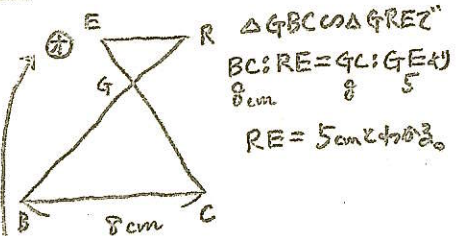 オ
E R
G
B C
8cm
△GBC∽△GREで
BC:RE=GC:GEより
8cm 8 5
RE=5cmとわかる。